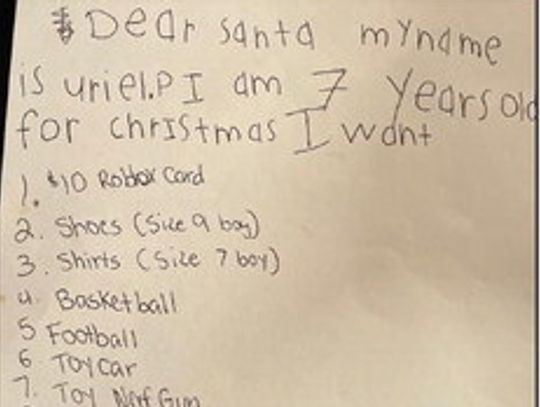 Dear santa myname
is uriel.P I am 7 Years old
for christmas I want
1. $10 Roblox Card
2. Shoes (Size 9 boy)
3. Shirts (Size 7 boy)
4. Basketball
5 Football
6 Toy car
7. Toy Nerf Gun